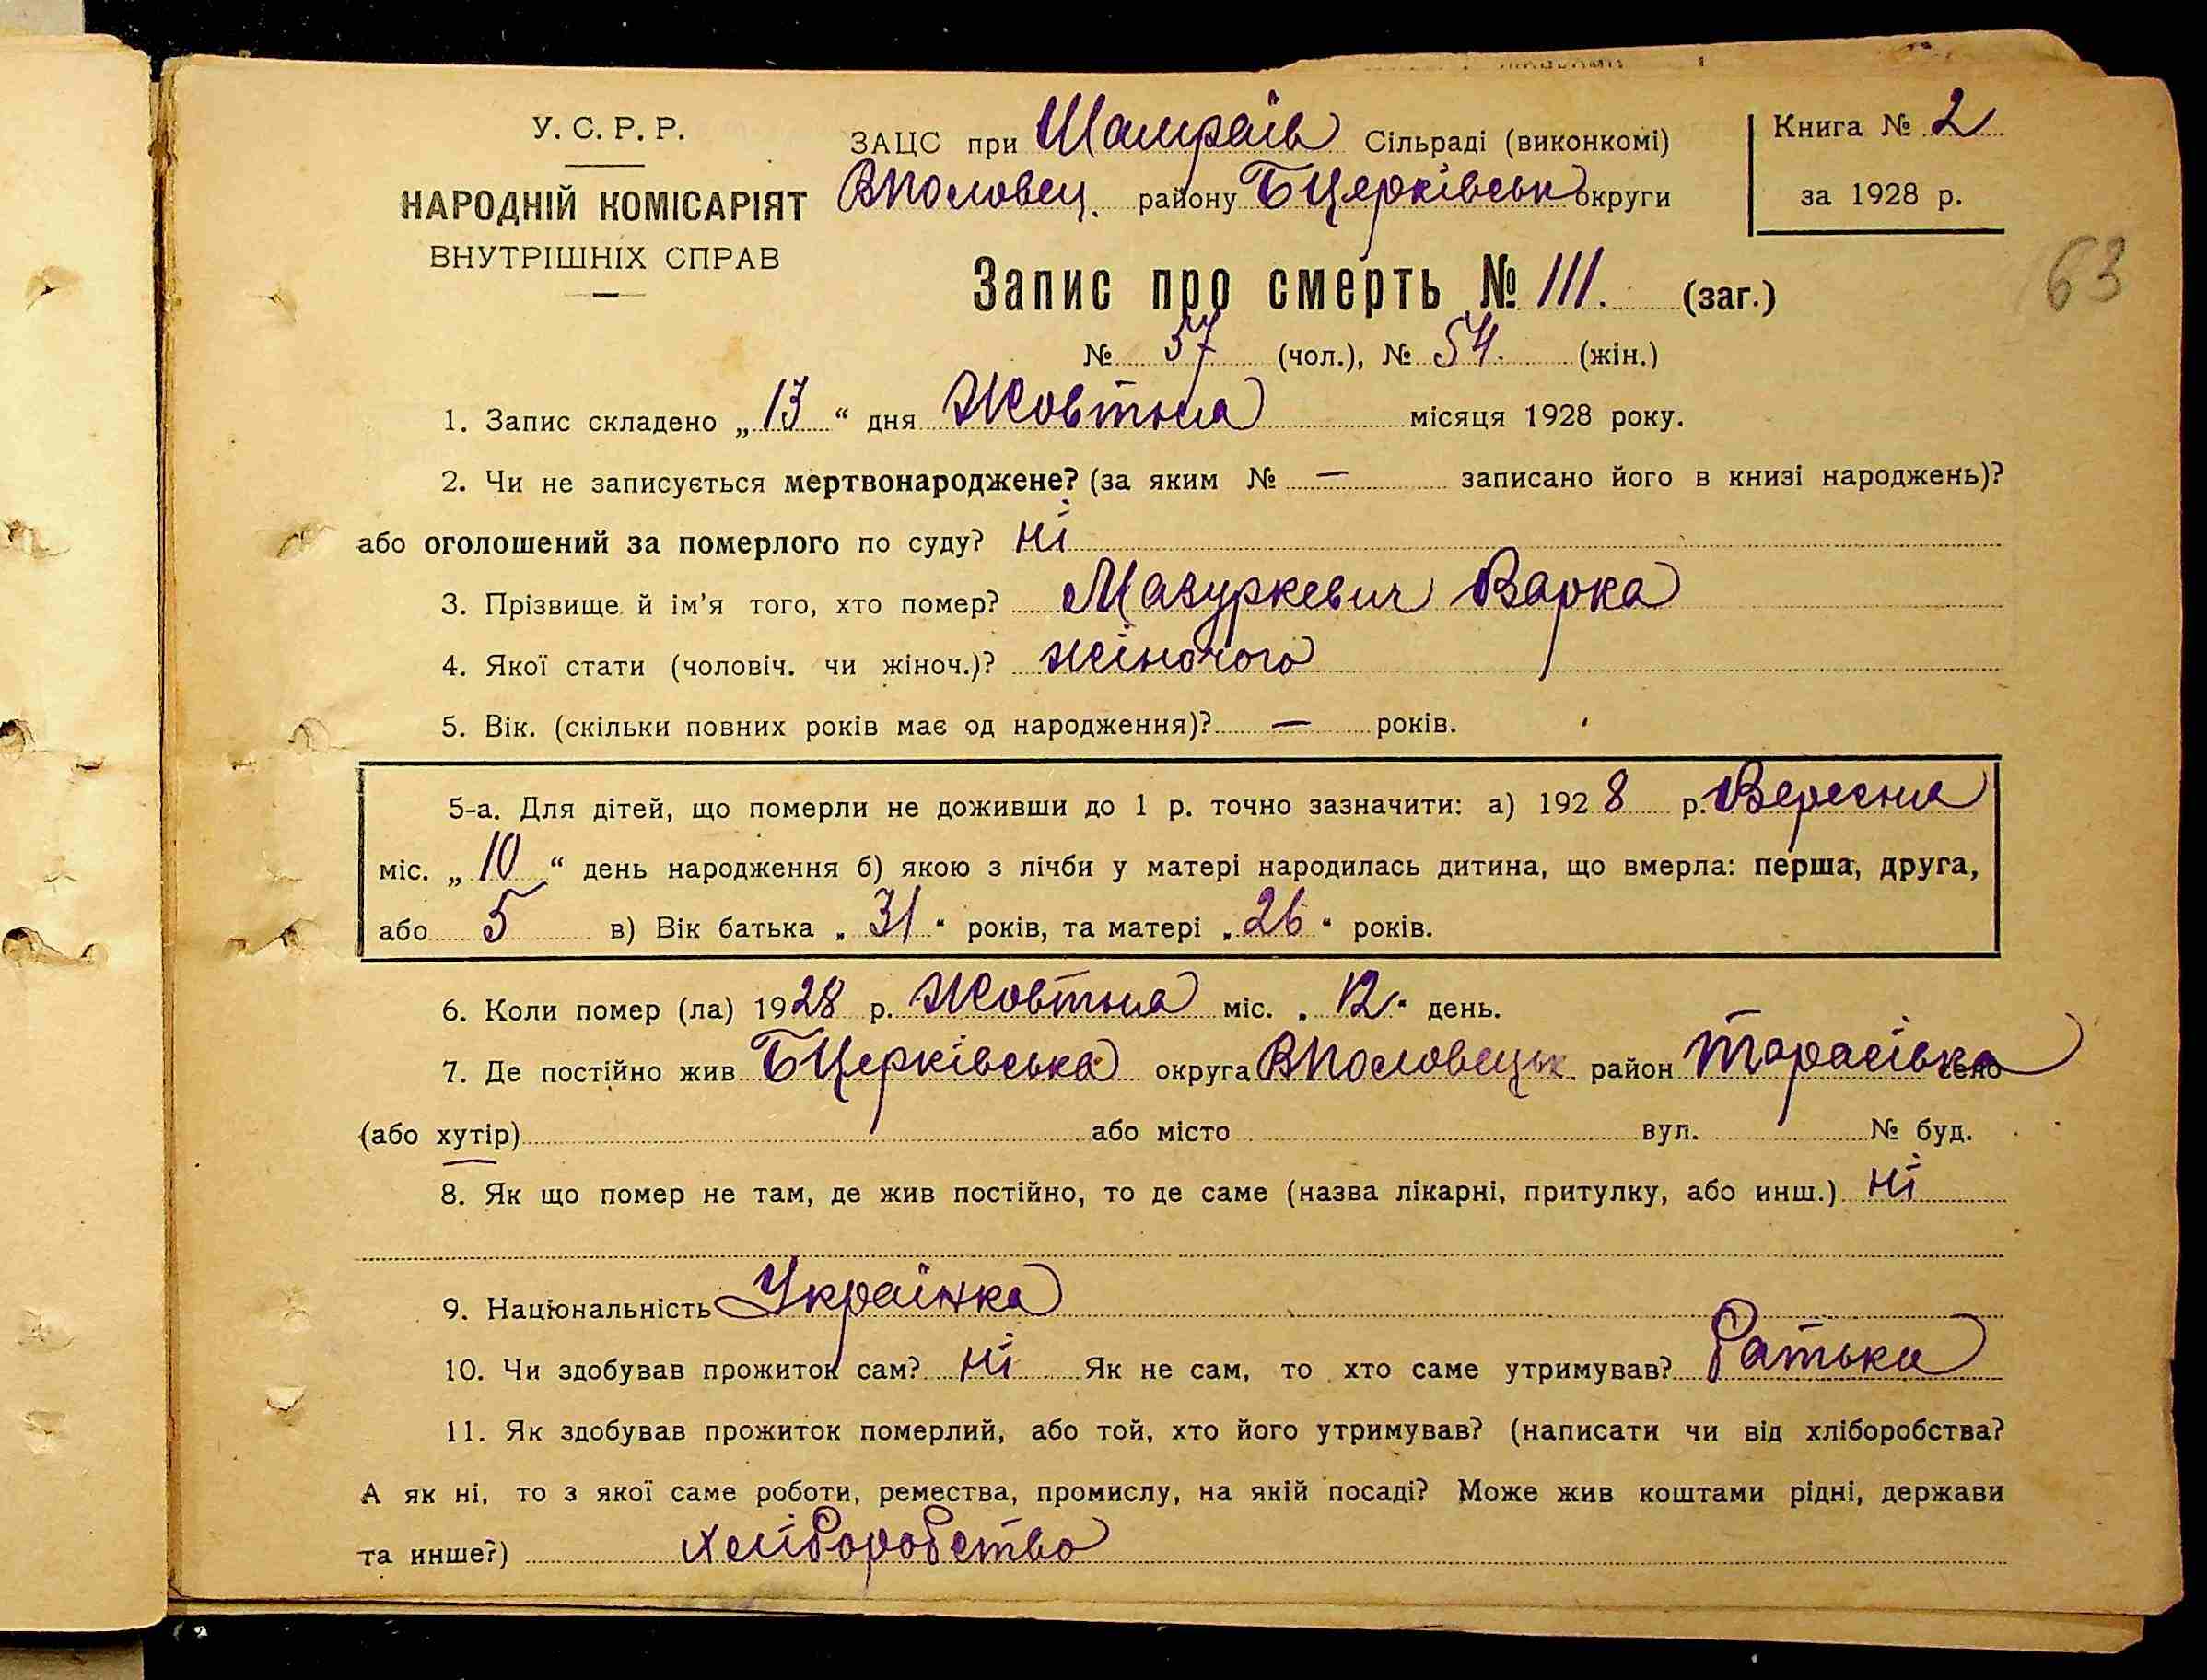 У. С. Р. Р.
НАРОДНІЙ КОМІСАРІЯТ
ВНУТРІШНІХ СПРАВ
ЗАЦС при Шамраїв Сільраді (виконкомі)
ВПоловец. району БЦерківськ округи
Книга № 2
за 1928 р.
63
Запис про смерть № 111. (заг.)
№ 57 (чол.), № 54. (жін.)
1. Запис складено „ 13 “ дня Жовтня місяця 1928 року.
2. Чи не записується мертвонароджене? (за яким № — записано його в книзі народжень)?
або оголошений за померлого по суду? ні
3. Прізвище й ім'я того, хто помер? Мазуркевич Варка
4. Якої стати (чоловіч. чи жіноч.)? жіночого
5. Вік. (скільки повних років має од народження)? — років.
5-а. Для дітей, що померли не доживши до 1 р. точно зазначити: а) 1928 р. Вересня
міс. „ 10 “ день народження б) якою з лічби у матері народилась дитина, що вмерла: перша, друга,
або 5 в) Вік батька „ 31 “ років, та матері „ 26 “ років.
6. Коли помер (ла) 1928 р. Жовтня міс. „ 12 “ день.
7. Де постійно жив БЦерківська округа ВПоловецьк район Тарасівка село
(або хутір) або місто вул. № буд.
8. Як що помер не там, де жив постійно, то де саме (назва лікарні, притулку, або инш.) ні
9. Національність Українка
10. Чи здобував прожиток сам? ні Як не сам, то хто саме утримував? батьки
11. Як здобував прожиток померлий, або той, хто його утримував? (написати чи від хліборобства?
А як ні, то з якої саме роботи, ремества, промислу, на якій посаді? Може жив коштами рідні, держави
та инше?) хліборобство